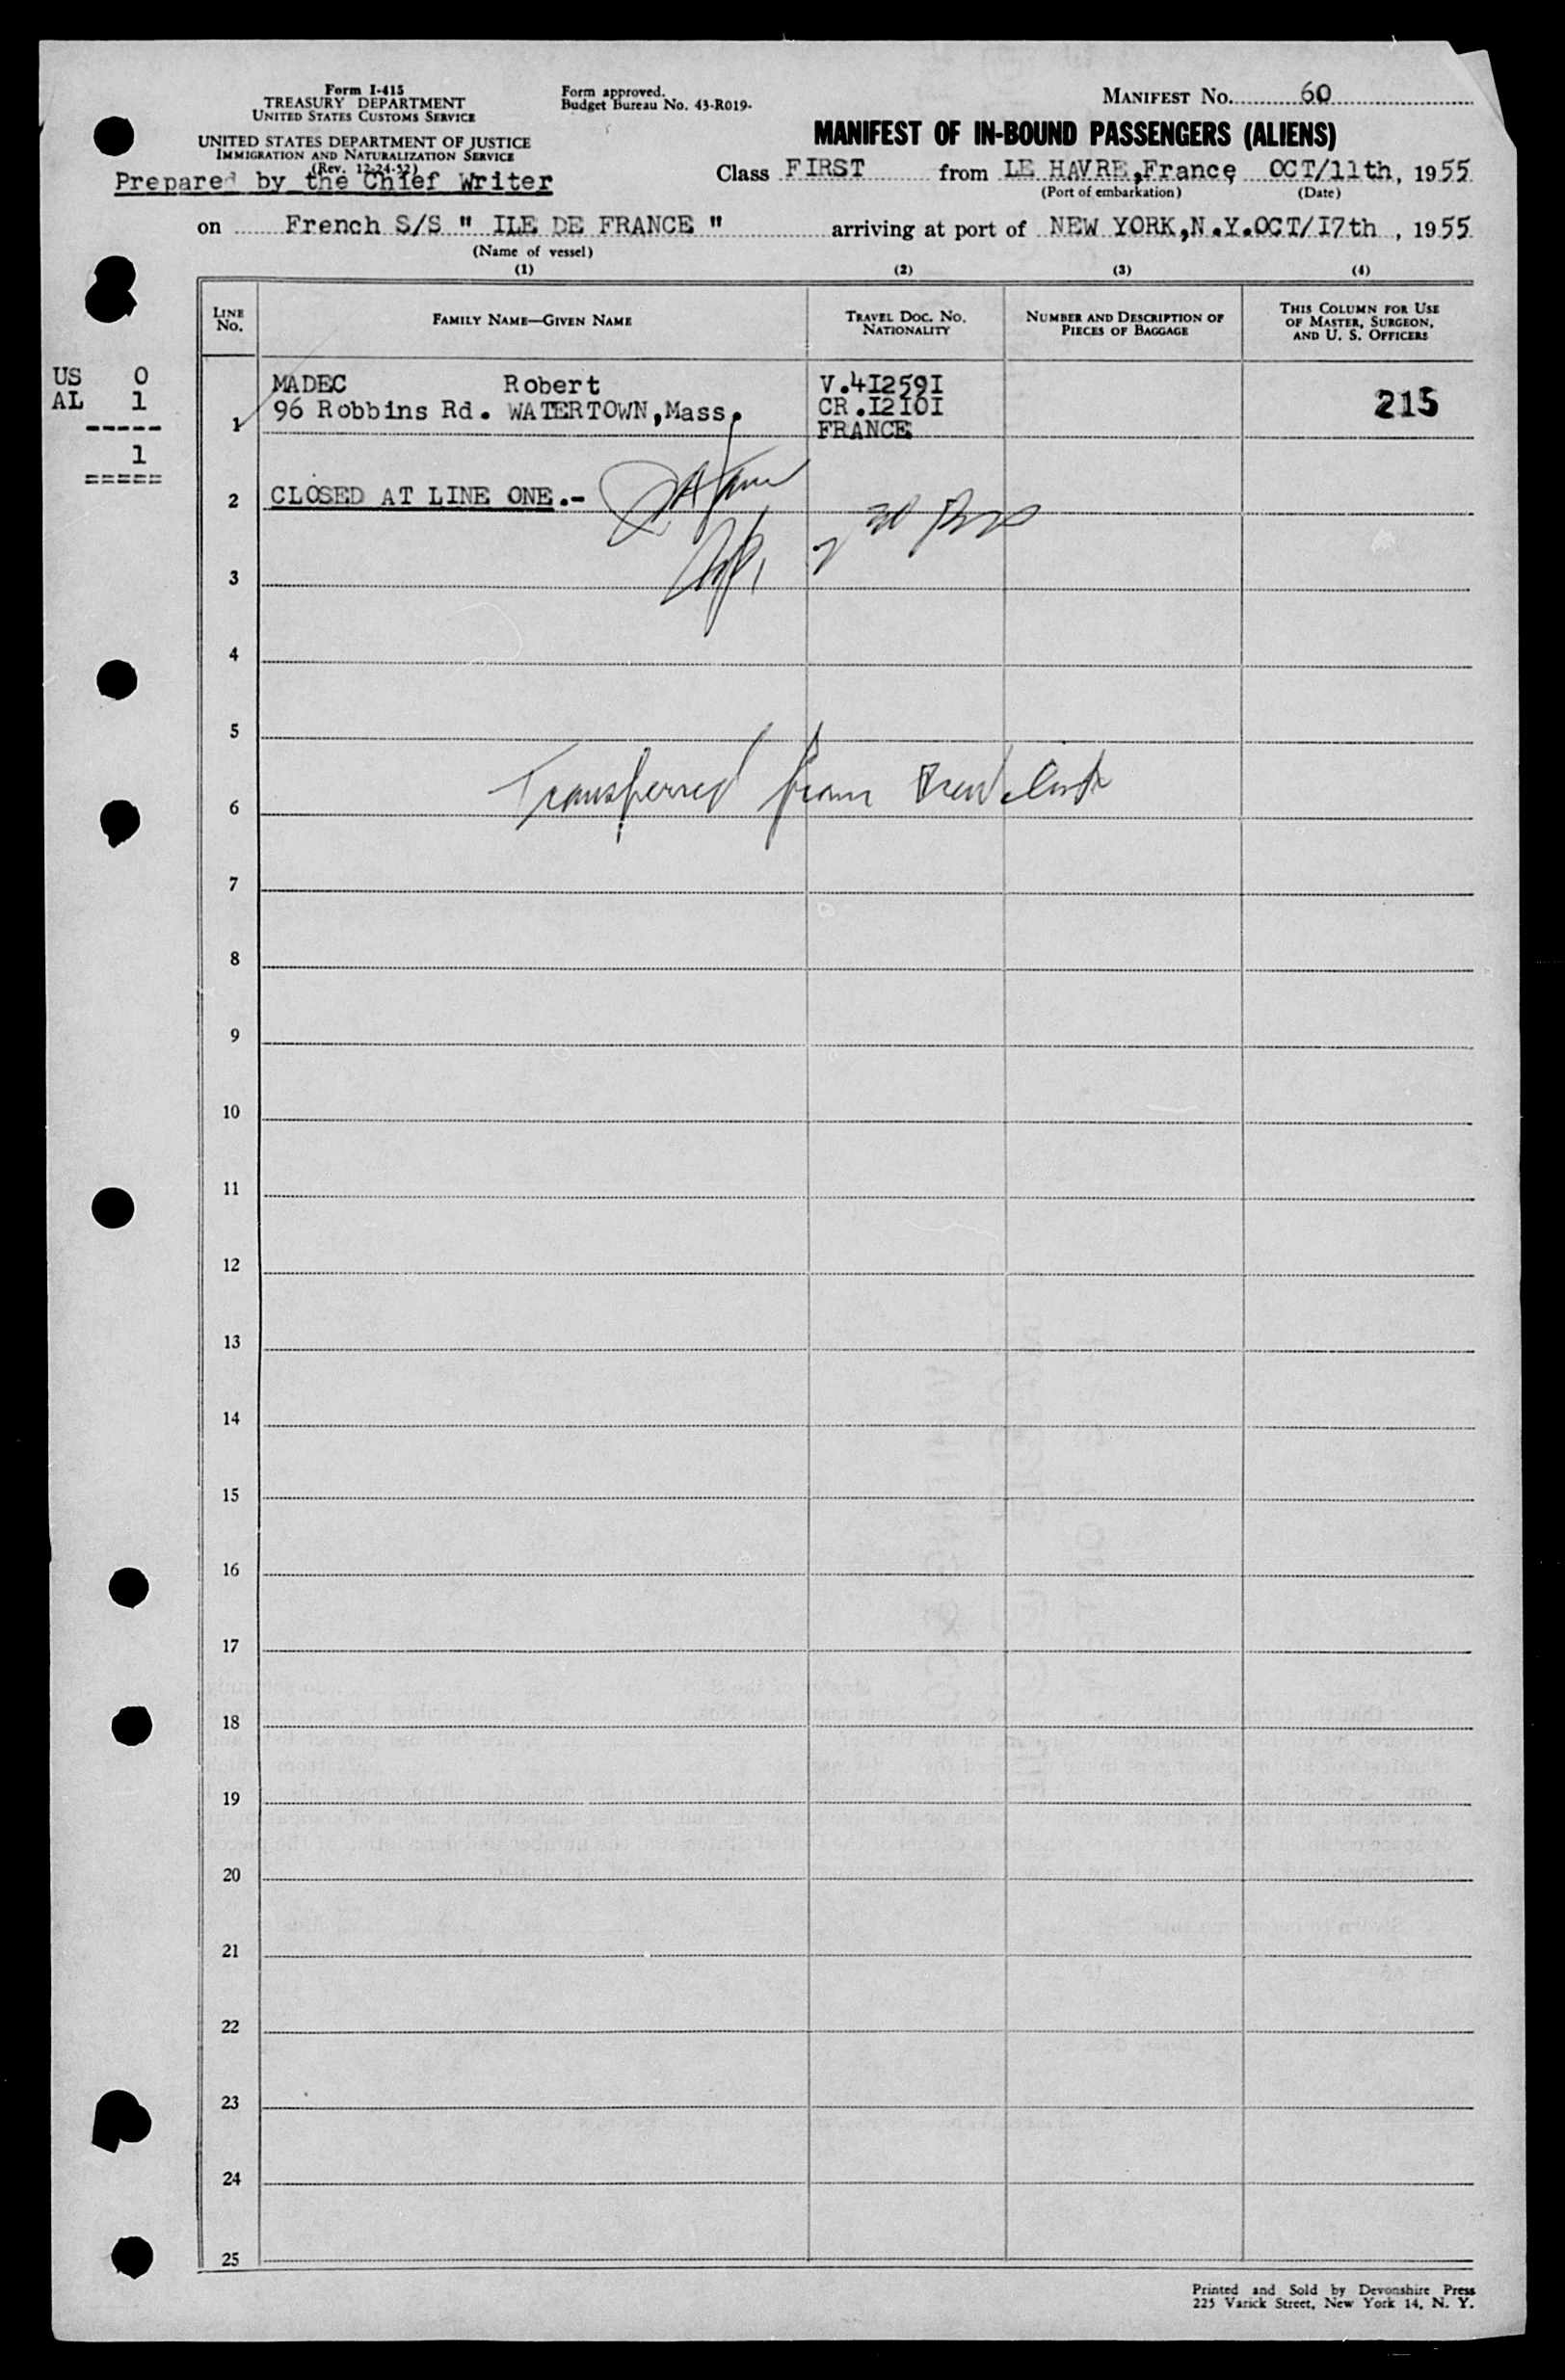 Form I-415
TREASURY DEPARTMENT
UNITED STATES CUSTOMS SERVICE
UNITED STATES DEPARTMENT OF JUSTICE
IMMIGRATION AND NATURALIZATION SERVICE
(Rev. 12-24-52)
Prepared by the Chief Writer
Form approved.
Budget Bureau No. 43-R019-
MANIFEST No. 60
MANIFEST OF IN-BOUND PASSENGERS (ALIENS)
Class FIRST from LE HAVRE,France OCT/11th, 1955
(Port of embarkation) (Date)
on French S/S " ILE DE FRANCE " arriving at port of NEW YORK,N.Y.OCT/I7th , 1955
(Name of vessel)
(1) (2) (3) (4)
LINE No.
FAMILY NAME—GIVEN NAME
TRAVEL DOC. NO. NATIONALITY
NUMBER AND DESCRIPTION OF PIECES OF BAGGAGE
THIS COLUMN FOR USE OF MASTER, SURGEON, AND U. S. OFFICERS
US 0
AL 1
-----
1
=====
MADEC Robert V.4I259I
96 Robbins Rd. WATERTOWN,Mass. CR.I2I0I 215
1 FRANCE
2 CLOSED AT LINE ONE.-
3
4
5
6 Transferred from Crew list
7
8
9
10
11
12
13
14
15
16
17
18
19
20
21
22
23
24
25
Printed and Sold by Devonshire Press
225 Varick Street, New York 14, N. Y.